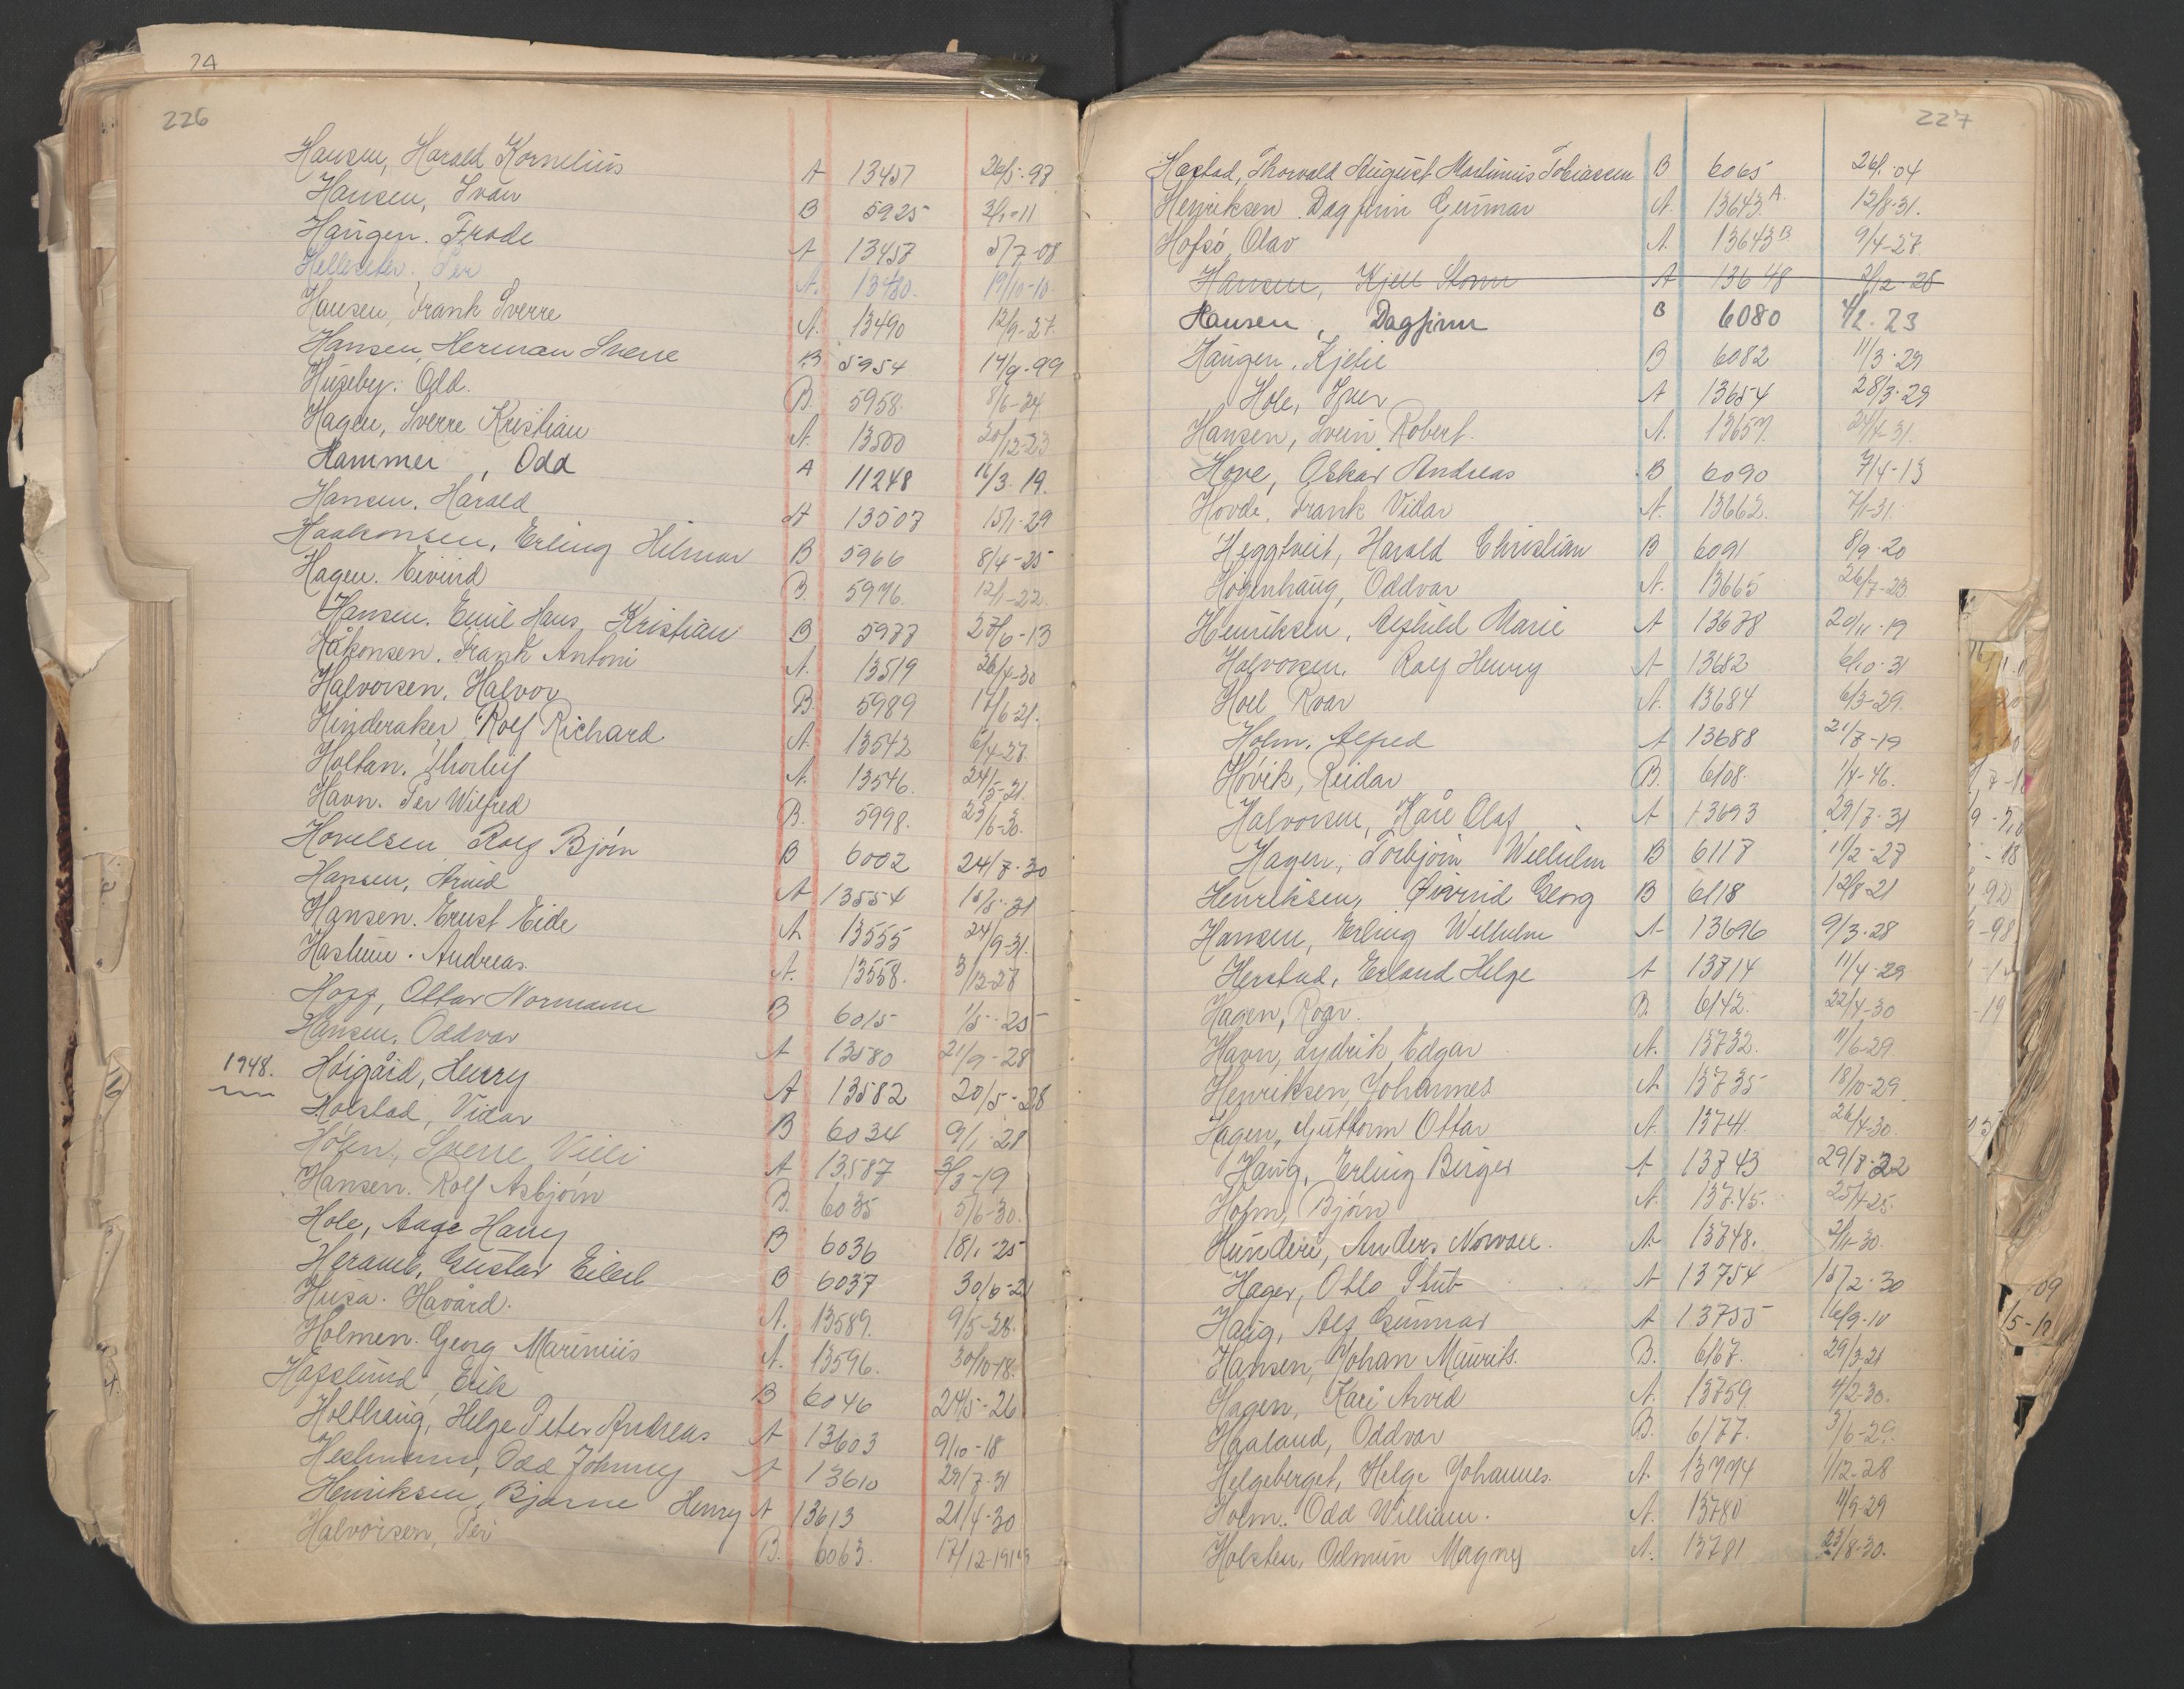 24
226
Hansen, Harald Kornelius A 13457 26/5-97
Hansen, Ivan B 5925 2/1-11
Haugen. Frode A 13457 5/7-08
Helleseter. Per A. 13480. 19/10-10.
Hansen, Frank Sverre A. 13490 12/9-27.
Hansen, Herman Sverre B 5954 14/9-99
Huseby. Odd. B. 5958. 8/6-24
Hagen, Sverre Kristian A. 13500 20/12-23
Hammer, Odd A 11248 16/3.19.
Hansen. Harald A 13507 15/1-29
Haakonsen, Erling Hilmar B 5966 8/4-25
Hagen. Eivind B. 5976. 12/1-22
Hansen. Emil Hans Kristian B 5977 27/6-13
Håkonsen. Frank Antoni A. 13519 26/4-30
Halvorsen, Halvor B. 5989 17/6-21.
Hinderaker, Rolf Richard A. 13542 6/4-27.
Holtan. Thorleif A. 13546. 24/5-21.
Havn. Per Wilfred B. 5998. 23/6-30.
Hovelsen Rolf Bjørn B 6002 24/7-30
Hansen, Arvid A 13554 10/8-31
Hansen. Ernst Eide A 13555 24/9-31.
Hastum. Andreas. A. 13558. 3/12-28
Hogg, Ottar Normann B 6015 1/5-25
Hansen. Oddvar A 13580 21/9-28
1948. Høigård, Henry A 13582 20/5-28
Holstad, Vidar B 6034 9/1-28
Holen, Sverre Villi A 13587 3/3-19
Hansen. Rolf Asbjørn B. 6035 5/6-30.
Hole, Aage Harry B 6036 18/1-25
Heramb, Gustav Eilert B 6037 30/6-21
Husa. Håvard. A. 13589. 9/5-28.
Holmen. Georg Marinius A. 13596. 30/10-18.
Hafslund, Erik B 6046 24/5-26
Holthaug, Helge Peter Andreas A 13603 9/10-18
Heslmann, Odd Johnny A 13610 29/7-31
Henriksen, Bjarne Henry A 13613 21/4-30
Halvorsen, Per B. 6063. 17/12-19
227
Hastad, Thorvald August Martinius Tobiassen B 6065 26/1-04
Henriksen Dagfinn Gunnar A. 13643.A. 12/8-31.
Hofsø, Olav A. 13643B 9/4-27.
Hansen, Kjell Storm A 13648 2/12-28
Hansen, Dagfinn B 6080 4/2.23
Haugen. Kjetil B 6082 11/3-29
Hole, Iver A 13654 28/3-29
Hansen, Svein Robert. A. 13657. 24/4-31.
Hove, Oskar Andreas B 6090 7/4-13
Hovde, Frank Vidar A. 13662. 7/1-31.
Heggtveit, Harald Christian B 6091 8/9-20
Høgenhaug, Oddvar A. 13665 26/7-23.
Henriksen, Aashild Marie A 13678 20/11-19
Halvorsen, Rolf Henry A 13682 6/10-31
Hoel Roar A. 13684 6/3-29.
Holm, Alfred A 13688 21/7-19
Høvik, Reidar B. 6108. 1/4-46.
Halvorsen, Kåre Olaf A 13693 29/7-31
Hagen, Torbjørn Wilhelm B 6117 11/2-27
Henriksen, Øivind Georg B 6118 12/8-21
Hansen, Erling Wilhelm A 13696 9/3-28
Herstad, Erland Helge A 13714 11/4-29
Hagen, Roar. B. 6142. 22/4-30
Havn, Lydrik Edgar A. 13732. 11/6-29
Henriksen, Johannes A 13735 18/10-29
Hagen, Guttorm Ottar A. 13741. 26/4-30.
Haug, Erling Birger A 13743 29/8-22
Holm, Bjørn A. 13745. 25/4-25.
Hunderi, Anders Norvall. A. 13748. 2/11-30.
Hager, Otto Stub A 13754 15/2-30
Haug, Alf Gunnar A 13755 16/9-10
Hansen, Johan Maurits. B. 6167. 29/3-21
Hagen, Kåre Arvid A. 13759. 4/2-30.
Haaland, Oddvar B. 6177. 3/6-29.
Helgeberget, Helge Johannes. A. 13774 1/12-28
Holm. Odd William. A. 13780 11/9-29
Holsten, Odmun Magny A. 13781 23/8-30.